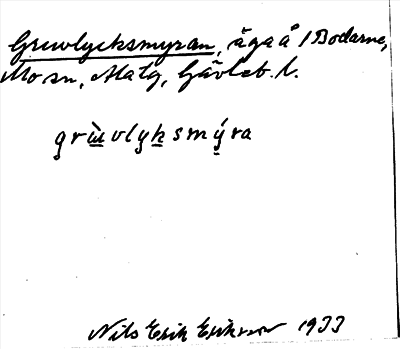 Gruvlycksmyran, ägaå / Bodarne,
Mo sn, Hälg, Gävleb. l.
grùvlyksmýra
Nils Erik Eriksson 1933